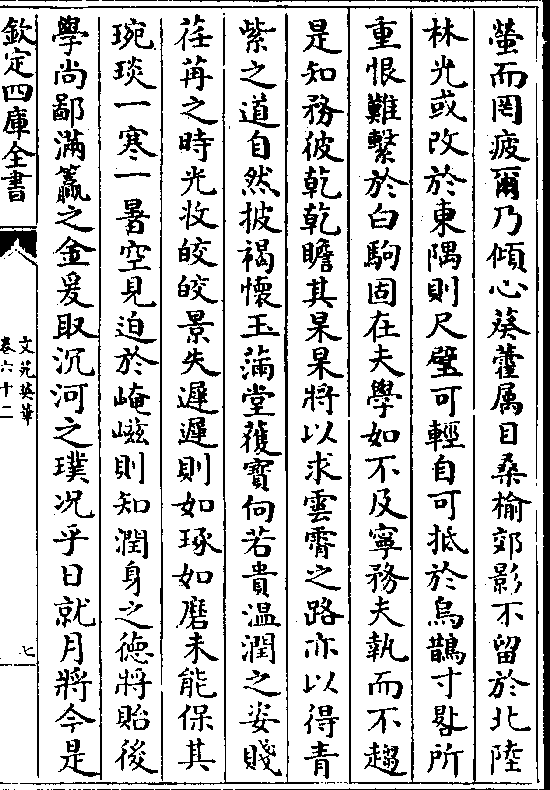 螢而罔疲爾乃傾心葵藿属目桑榆郊影不留於北陸
林光或改於東隅則尺璧可輕自可抵於烏鵲寸晷所
重恨難繫於白駒固在夫學如不及寧務夫執而不趨
是知務彼乾乾瞻其杲杲將以求雲霄之路亦以得青
紫之道自然披褐懷玉滿堂獲寶何若貴溫潤之姿賤
荏苒之時光收皎皎景失遲遲則如琢如磨未能保其
琬琰一寒一暑空見迫於崦嵫則知潤身之德將貽後
學尚鄙滿籯之金爰取沉河之璞况乎日就月將今是
欽定四庫全書
文苑英華
卷六十二
七